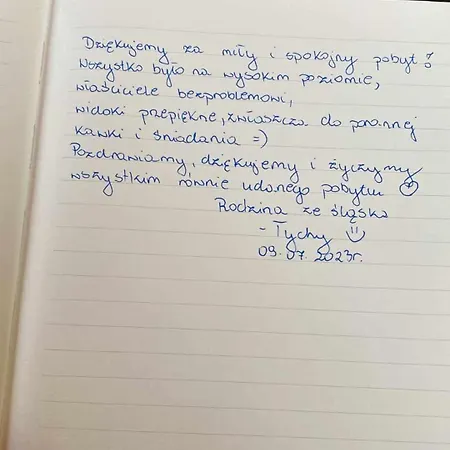 Dziękujemy za miły i spokojny pobyt!
Wszystko było na wysokim poziomie,
właściciele bezproblemowi,
widoki przepiękne, zwłaszcza do porannej
kawki i śniadania =)
Pozdrawiamy, dziękujemy i życzymy
wszystkim równie udanego pobytu
Rodzina ze śląska
- Tychy
09.07.2023r.